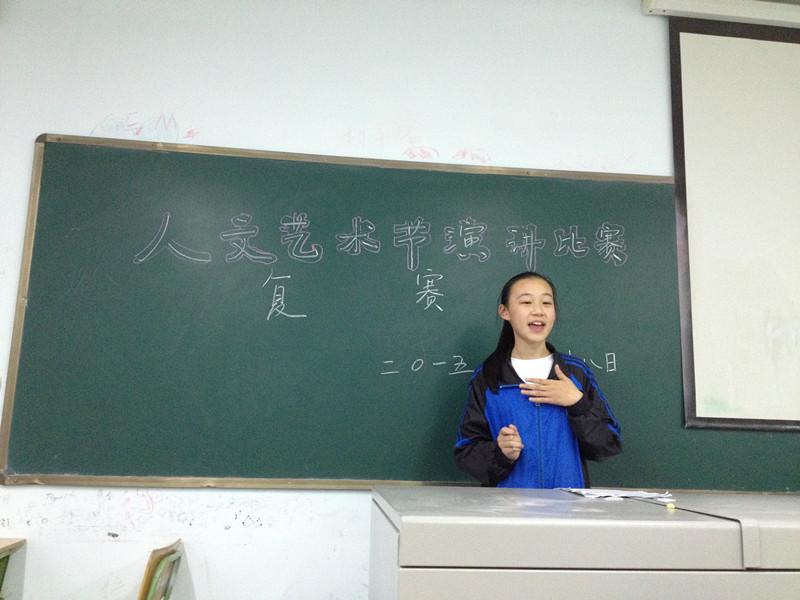 人文艺术节演讲比赛
复赛
二〇一五 八日